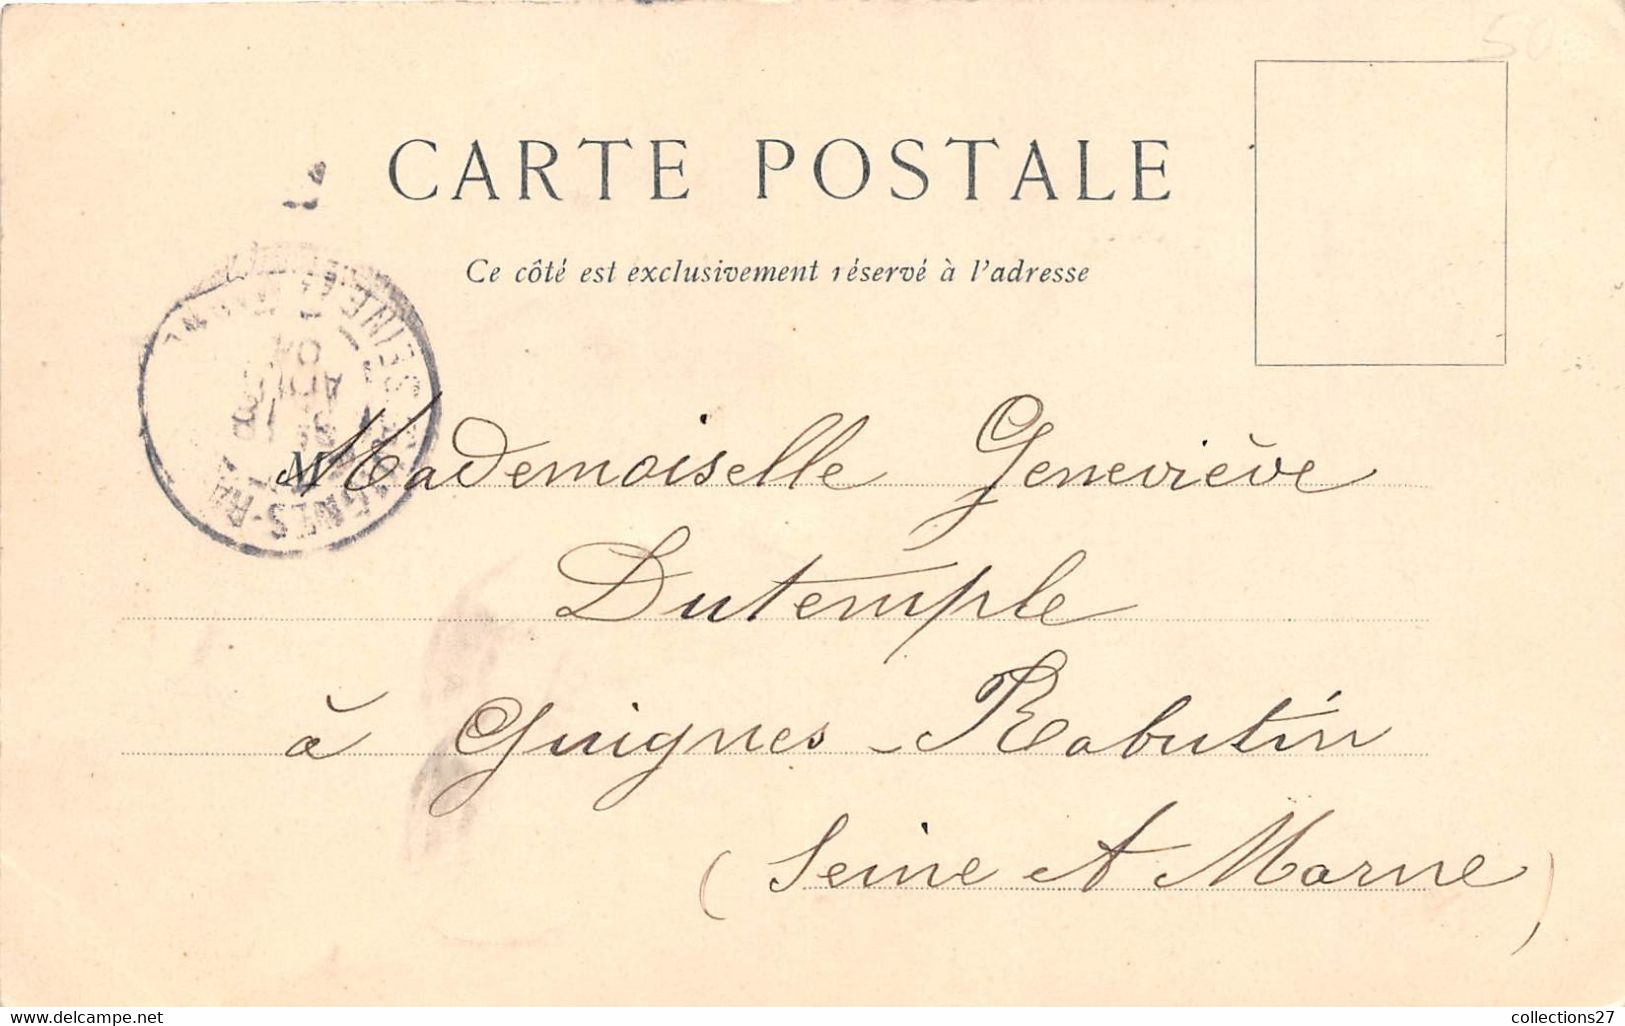 50
CARTE POSTALE
Ce côté est exclusivement réservé à l'adresse
SEINE-ET-MARNE
04
GUIGNES-RA
M
Mademoiselle Geneviève
Dutemple
à Guignes-Rabutin
(Seine et Marne)
www.delcampe.net
collections27